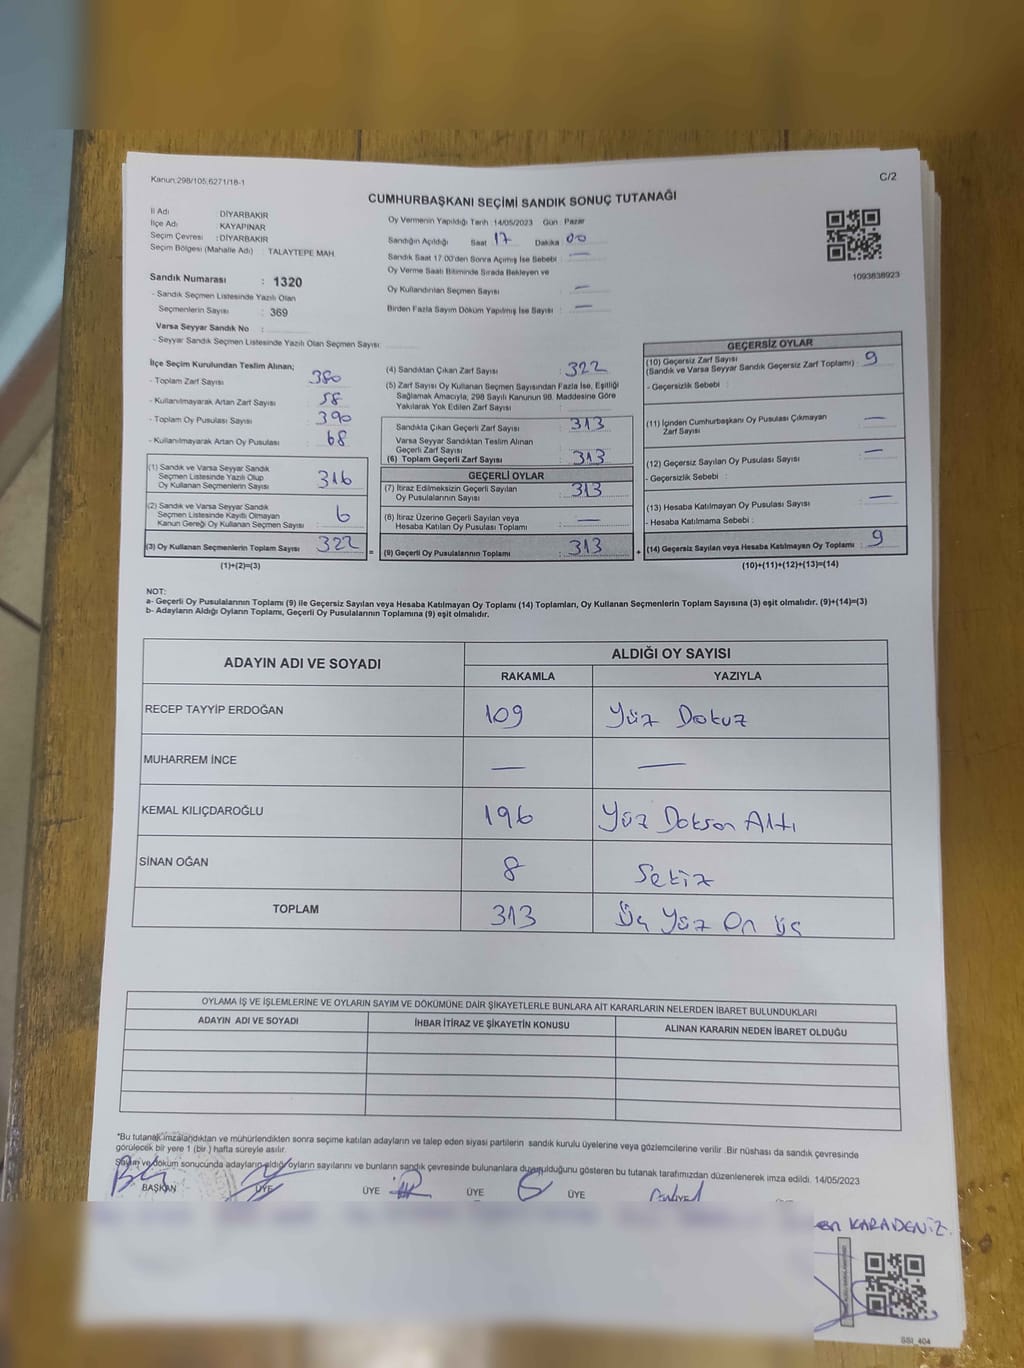 Kanun:298/105;6271/18-1
C/2
CUMHURBAŞKANI SEÇİMİ SANDIK SONUÇ TUTANAĞI
İl Adı DİYARBAKIR
İlçe Adı KAYAPINAR
Seçim Çevresi : DİYARBAKIR
Seçim Bölgesi (Mahalle Adı) : TALAYTEPE MAH.
Oy Vermenin Yapıldığı Tarih 14/05/2023 Gün : Pazar
Sandığın Açıldığı Saat 17 Dakika 00
Sandık Saat 17:00'den Sonra Açımış İse Sebebi : —
Oy Verme Saati Bitiminde Sırada Bekleyen ve
Oy Kullandırılan Seçmen Sayısı —
Birden Fazla Sayım Döküm Yapılmış İse Sayısı : —
1093838923
Sandık Numarası : 1320
- Sandık Seçmen Listesinde Yazılı Olan
Seçmenlerin Sayısı : 369
Varsa Seyyar Sandık No :
- Seyyar Sandık Seçmen Listesinde Yazılı Olan Seçmen Sayısı:
İlçe Seçim Kurulundan Teslim Alınan;
- Toplam Zarf Sayısı 380
- Kullanılmayarak Artan Zarf Sayısı 58
- Toplam Oy Pusulası Sayısı 390
- Kullanılmayarak Artan Oy Pusulası 68
(1) Sandık ve Varsa Seyyar Sandık
Seçmen Listesinde Yazılı Olup
Oy Kullanan Seçmenlerin Sayısı 316
(2) Sandık ve Varsa Seyyar Sandık
Seçmen Listesinde Kayıtlı Olmayan
Kanun Gereği Oy Kullanan Seçmen Sayısı : 6
(3) Oy Kullanan Seçmenlerin Toplam Sayısı 322
(1)+(2)=(3)
(4) Sandıktan Çıkan Zarf Sayısı : 322
(5) Zarf Sayısı Oy Kullanan Seçmen Sayısından Fazla İse, Eşitliği
Sağlamak Amacıyla, 298 Sayılı Kanunun 98. Maddesine Göre
Yakılarak Yok Edilen Zarf Sayısı :
Sandıkta Çıkan Geçerli Zarf Sayısı : 313
Varsa Seyyar Sandıktan Teslim Alınan
Geçerli Zarf Sayısı :
(6) Toplam Geçerli Zarf Sayısı : 313
GEÇERLİ OYLAR
(7) İtiraz Edilmeksizin Geçerli Sayılan
Oy Pusulalarının Sayısı : 313
(8) İtiraz Üzerine Geçerli Sayılan veya
Hesaba Katılan Oy Pusulası Toplamı : —
=
(9) Geçerli Oy Pusulalarının Toplamı : 313
+
GEÇERSİZ OYLAR
(10) Geçersiz Zarf Sayısı
(Sandık ve Varsa Seyyar Sandık Geçersiz Zarf Toplamı) : 9
- Geçersizlik Sebebi :
(11) İçinden Cumhurbaşkanı Oy Pusulası Çıkmayan
Zarf Sayısı : —
(12) Geçersiz Sayılan Oy Pusulası Sayısı : —
- Geçersizlik Sebebi :
(13) Hesaba Katılmayan Oy Pusulası Sayısı : —
- Hesaba Katılmama Sebebi :
(14) Geçersiz Sayılan veya Hesaba Katılmayan Oy Toplamı : 9
(10)+(11)+(12)+(13)=(14)
NOT:
a- Geçerli Oy Pusulalarının Toplamı (9) ile Geçersiz Sayılan veya Hesaba Katılmayan Oy Toplamı (14) Toplamları, Oy Kullanan Seçmenlerin Toplam Sayısına (3) eşit olmalıdır. (9)+(14)=(3)
b- Adayların Aldığı Oyların Toplamı, Geçerli Oy Pusulalarının Toplamına (9) eşit olmalıdır.
ADAYIN ADI VE SOYADI
ALDIĞI OY SAYISI
RAKAMLA YAZIYLA
RECEP TAYYİP ERDOĞAN 109 Yüz Dokuz
MUHARREM İNCE — —
KEMAL KILIÇDAROĞLU 196 Yüz Doksan Altı
SİNAN OĞAN 8 Sekiz
TOPLAM 313 Üç Yüz On üç
OYLAMA İŞ VE İŞLEMLERİNE VE OYLARIN SAYIM VE DÖKÜMÜNE DAİR ŞİKAYETLERLE BUNLARA AİT KARARLARIN NELERDEN İBARET BULUNDUKLARI
ADAYIN ADI VE SOYADI İHBAR İTİRAZ VE ŞİKAYETİN KONUSU ALINAN KARARIN NEDEN İBARET OLDUĞU
*Bu tutanak imzalandıktan ve mühürlendikten sonra seçime katılan adayların ve talep eden siyasi partilerin sandık kurulu üyelerine veya gözlemcilerine verilir. Bir nüshası da sandık çevresinde
görülecek bir yere 1 (bir ) hafta süreyle asılır.
Sayım ve döküm sonucunda adayların aldığı oyların sayılarını ve bunların sandık çevresinde bulunanlara duyurulduğunu gösteren bu tutanak tarafımızdan düzenlenerek imza edildi. 14/05/2023
BAŞKAN ÜYE ÜYE ÜYE ÜYE
KARADENİZ
SSI_404